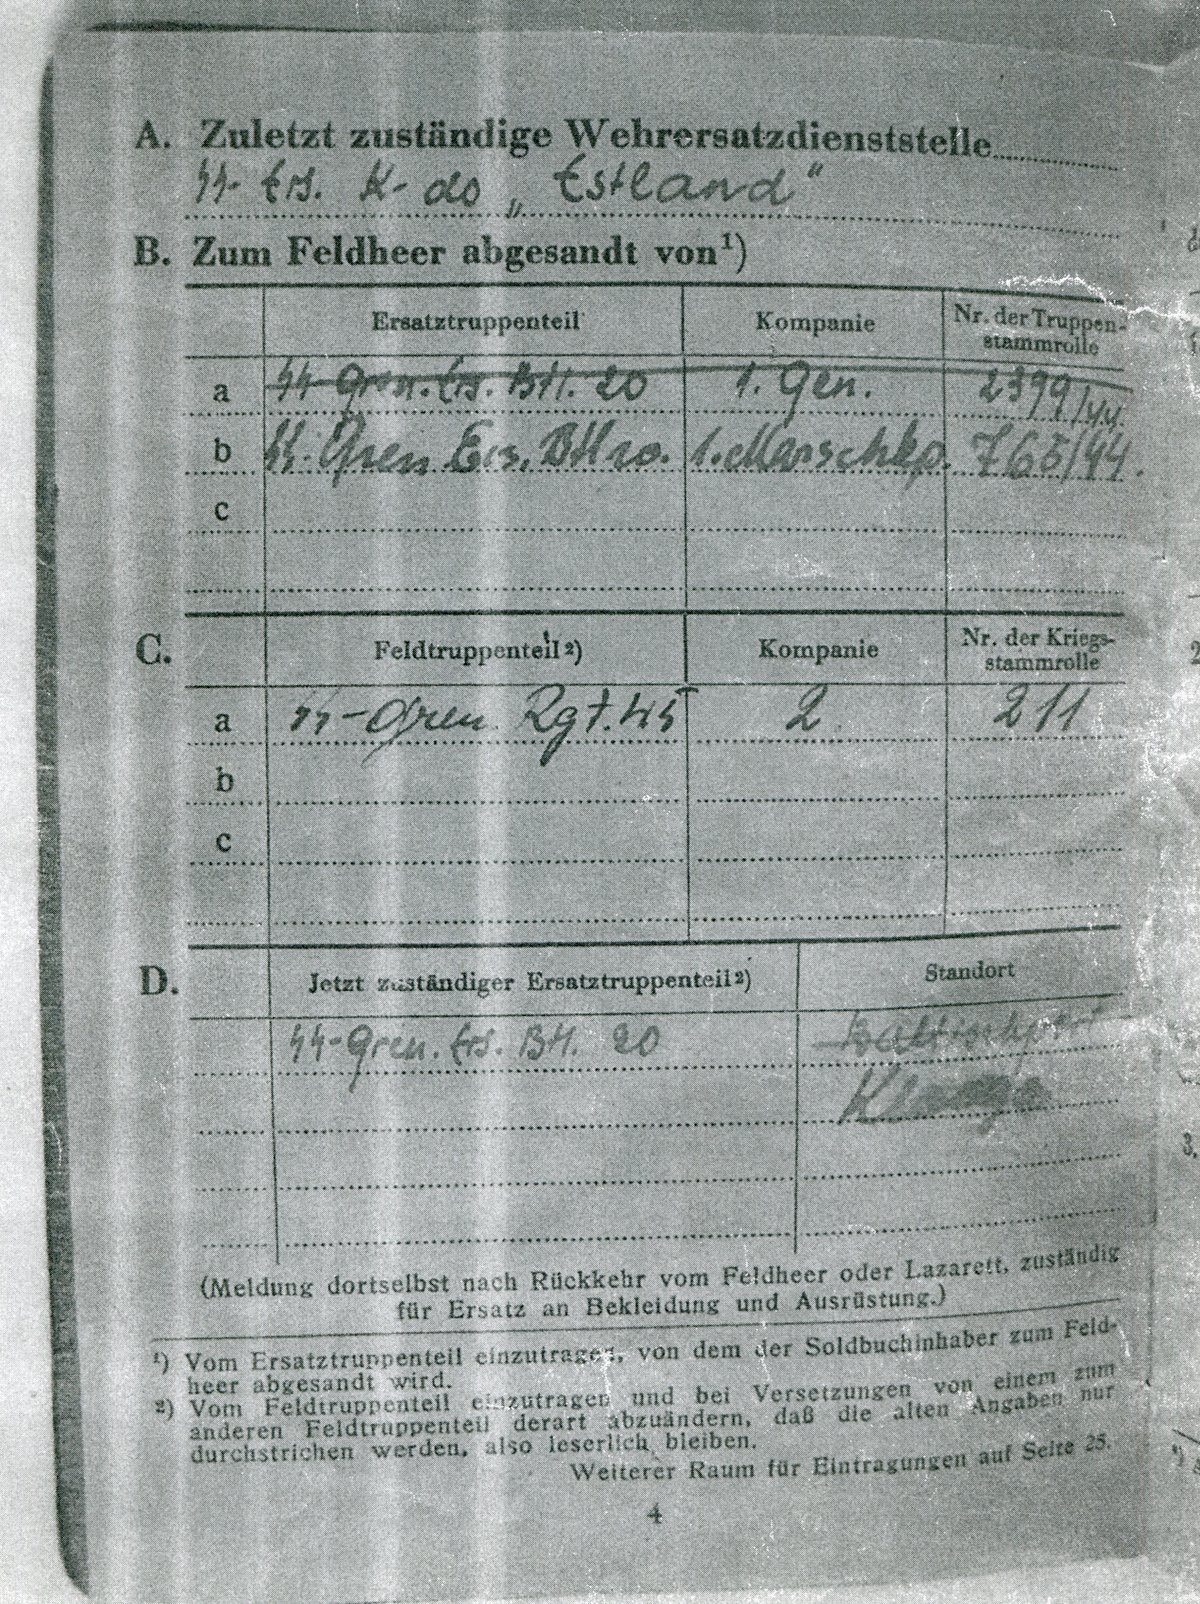 A. Zuletzt zuständige Wehrersatzdienststelle
SS-Ers. K-do „Estland“
B. Zum Feldheer abgesandt von¹)
Ersatztruppenteil Kompanie Nr. der Truppen-
stammrolle
a SS-Gren. Ers. Btl. 20 1. Gen. 2399/44.
b SS. Gren Ers. Btl 20. 1. Marschkp. 765/44.
c
C. Feldtruppenteil ²) Kompanie Nr. der Kriegs-
stammrolle
a SS-Gren. Rgt. 45 2 211
b
c
D. Jetzt zuständiger Ersatztruppenteil ²) Standort
SS-Gren. Ers. Btl. 20 Baltischport
Klooga
(Meldung dortselbst nach Rückkehr vom Feldheer oder Lazarett, zuständig
für Ersatz an Bekleidung und Ausrüstung.)
¹) Vom Ersatztruppenteil einzutragen, von dem der Soldbuchinhaber zum Feld-
heer abgesandt wird.
²) Vom Feldtruppenteil einzutragen und bei Versetzungen von einem zum
anderen Feldtruppenteil derart abzuändern, daß die alten Angaben nur
durchstrichen werden, also leserlich bleiben.
Weiterer Raum für Eintragungen auf Seite 25.
4